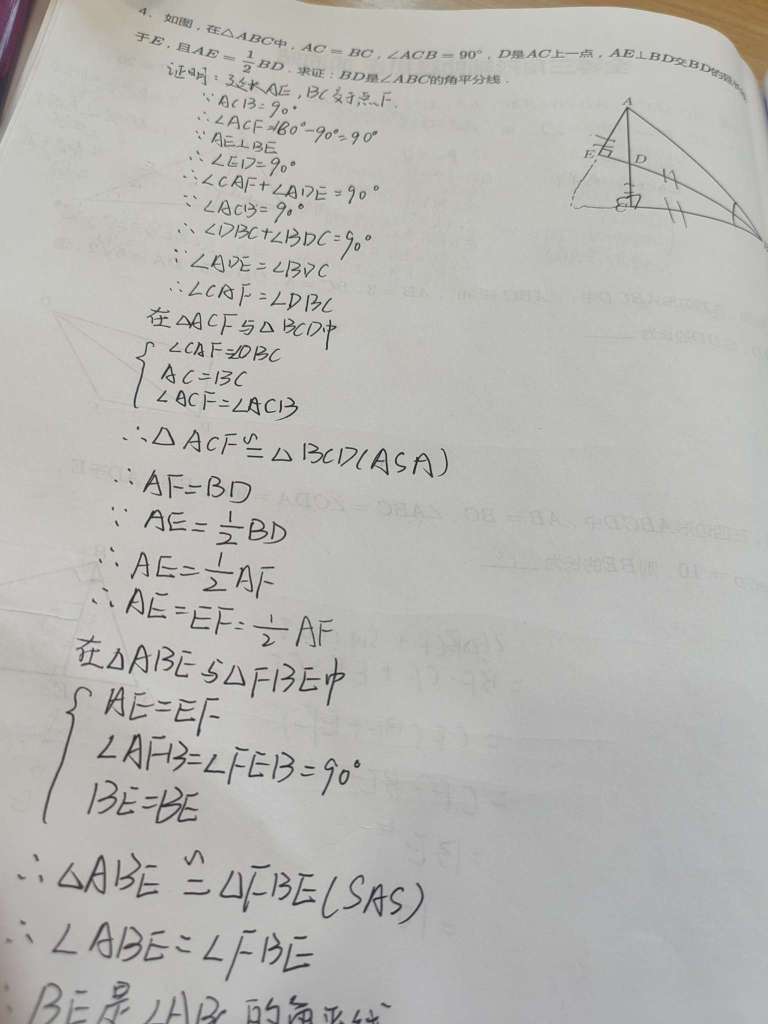 4. 如图，在△ABC中，AC = BC，∠ACB = 90°，D是AC上一点，AE⊥BD交BD的
于E，且AE = 1/2 BD．求证：BD是∠ABC的角平分线．
证明：延长AE，BC交于点F.
∵ ACB=90°
∴∠ACF=180°-90°=90°
∵ AE⊥BE
∴ ∠ED=90°
∴∠CAF+∠ADE=90°
∵ ∠ACB=90°
∴ ∠DBC+∠BDC=90°
∵ ∠ADE=∠BDC
∴∠CAF=∠DBC
在△ACF与△BCD中
∠CAF=∠DBC
AC=BC
∠ACF=∠ACB
∴△ACF≌△BCD(ASA)
∵AF=BD
∵ AE=1/2 BD
∴ AE=1/2 AF
∴ AE=EF=1/2 AF
在△ABE与△FBE中
AE=EF
∠AFB=∠FEB=90°
BE=BE
∴△ABE≌△FBE(SAS)
∴ ∠ABE=∠FBE
BE是∠ABC的角平线
A
E
D
C